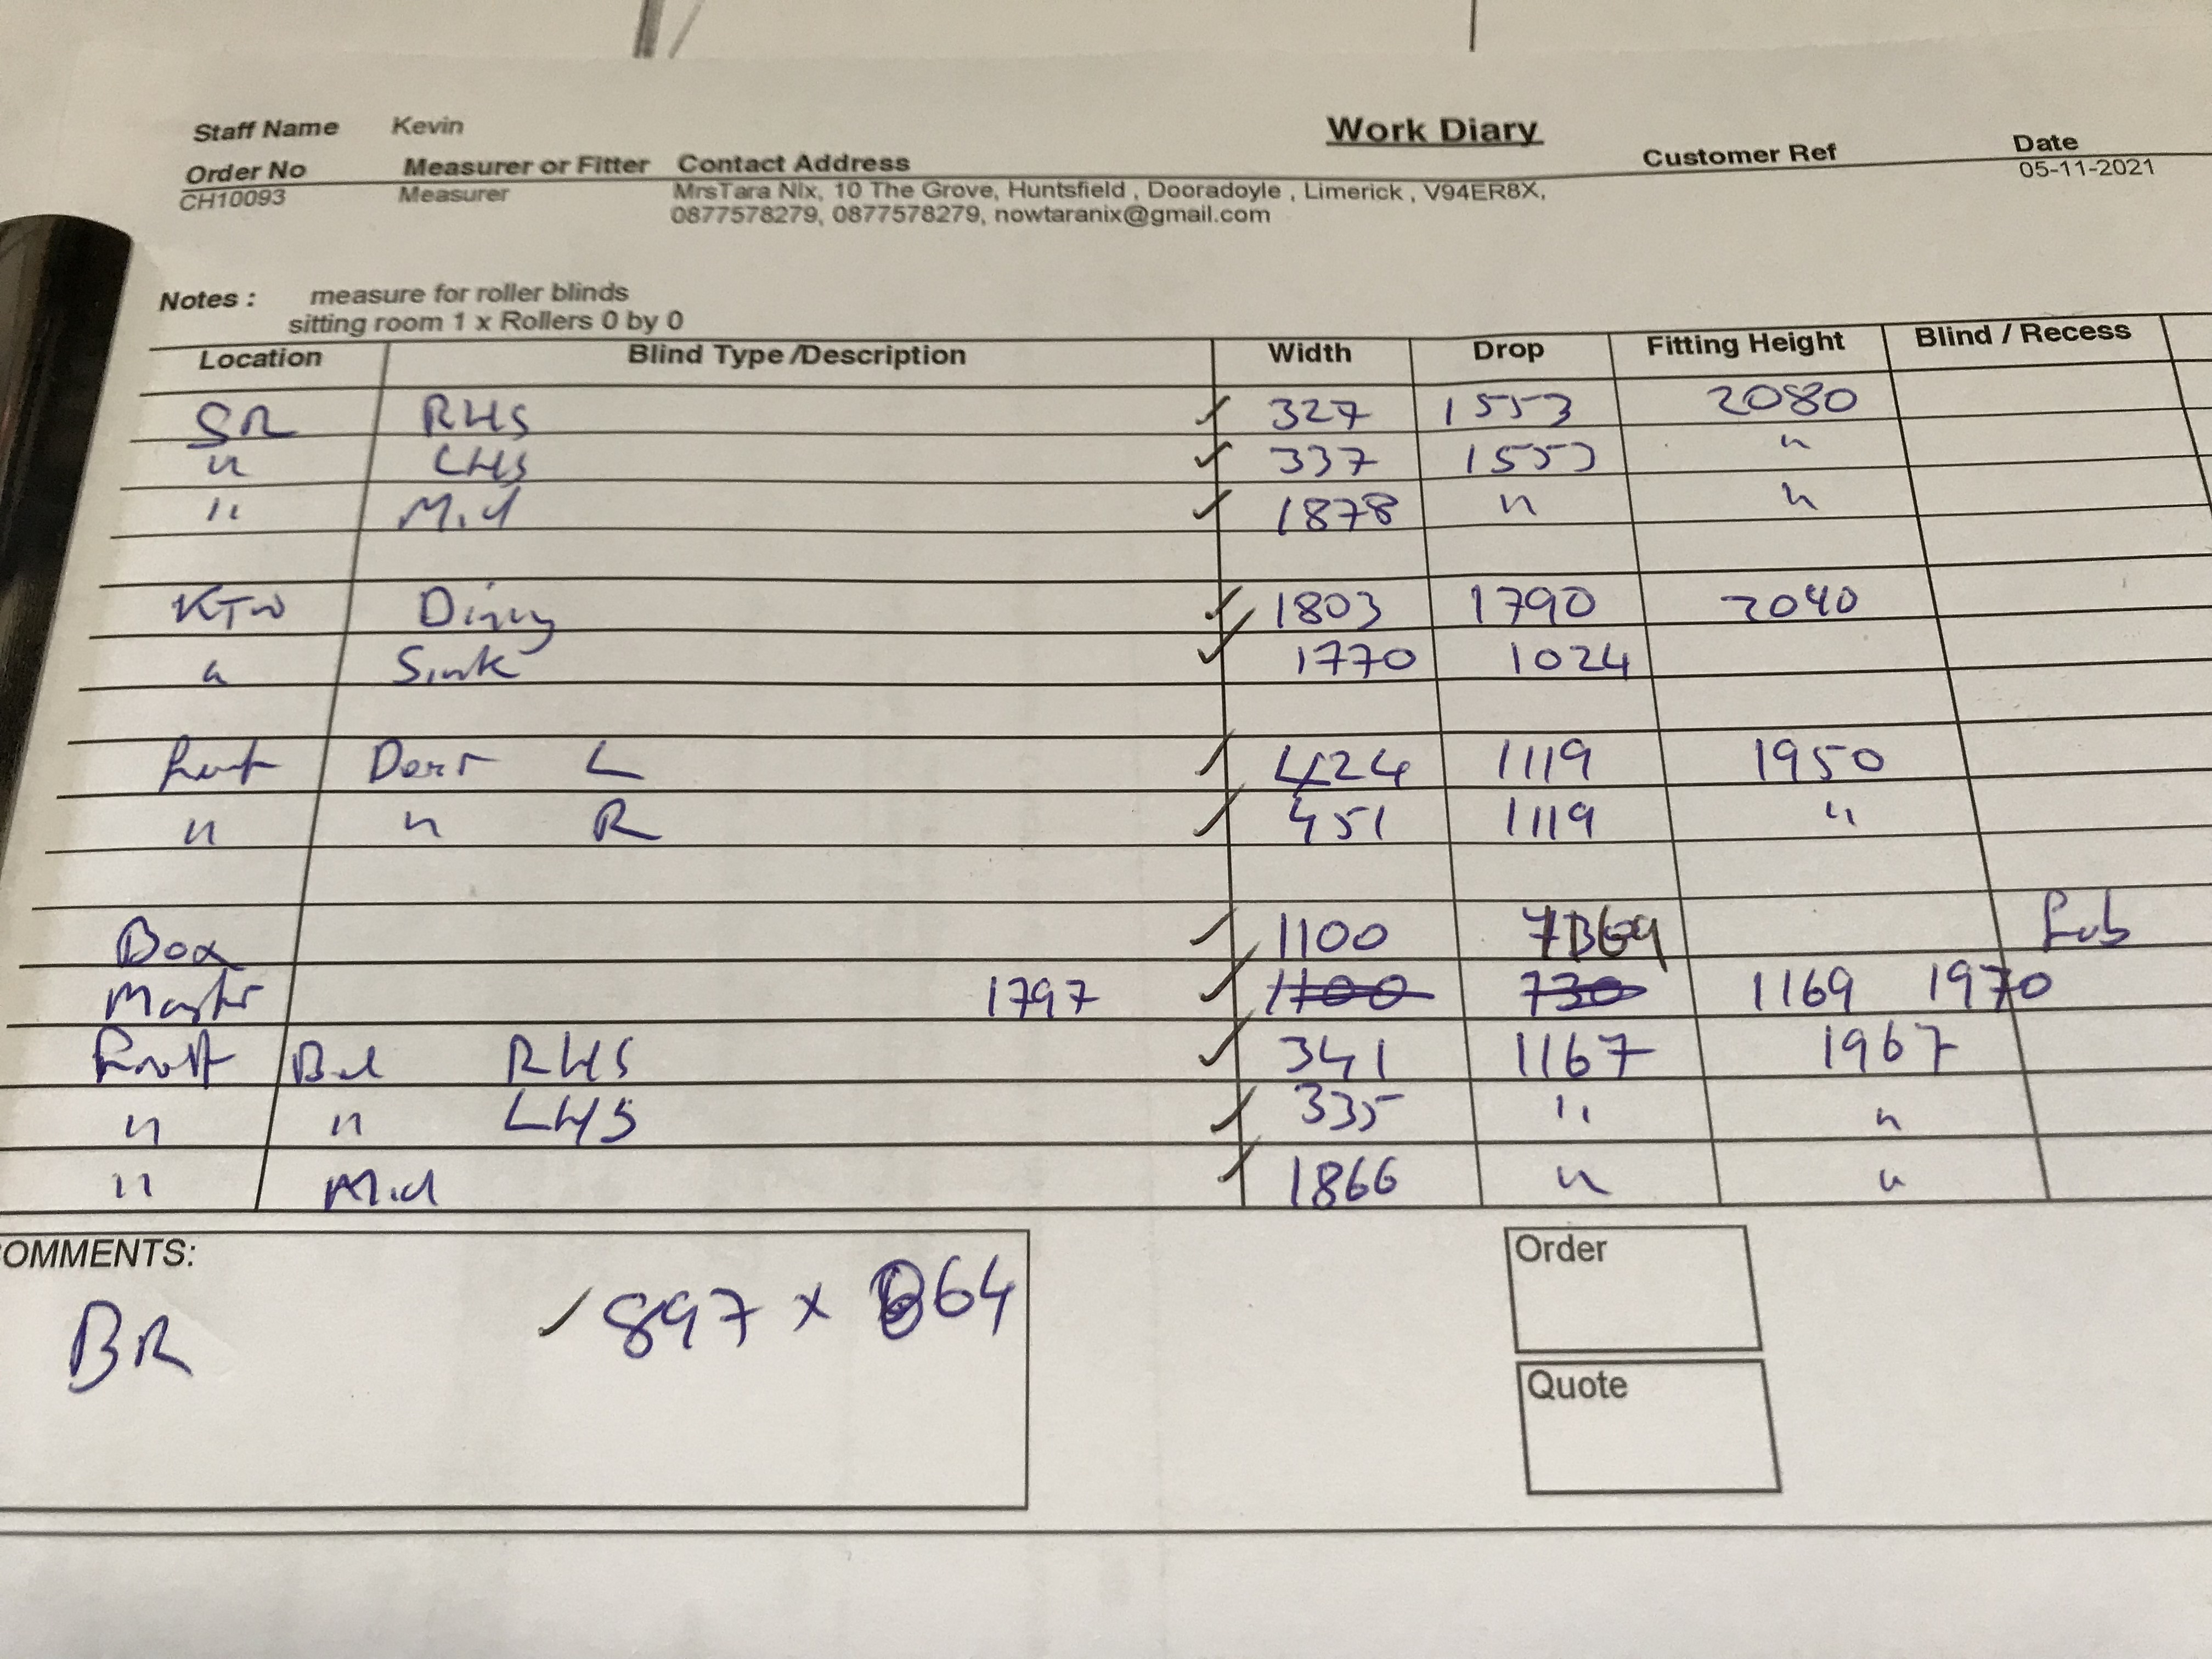 Work Diary
Staff Name Kevin
Order No Measurer or Fitter Contact Address Customer Ref Date
CH10093 Measurer MrsTara Nix, 10 The Grove, Huntsfield , Dooradoyle , Limerick , V94ER8X, 05-11-2021
0877578279, 0877578279, nowtaranix@gmail.com
Notes : measure for roller blinds
sitting room 1 x Rollers 0 by 0
Location Blind Type /Description Width Drop Fitting Height Blind / Recess
SR RHS ✓ 327 1553 2080
" LHS ✓ 337 1553 "
" Mid ✓ 1878 " "
KTN Dining ✓ 1803 1790 2040
" Sink ✓ 1770 1024
Door L ✓ 424 1119 1950
" " R ✓ 451 1119 "
Box ✓ 1100
Master 1797 ✓ 1100 730 1169 1970
Front Bed RHS ✓ 341 1167 1967
" " LHS ✓ 335 " "
" Mid ✓ 1866 " "
OMMENTS:
BR ✓ 897 x 864
Order
Quote